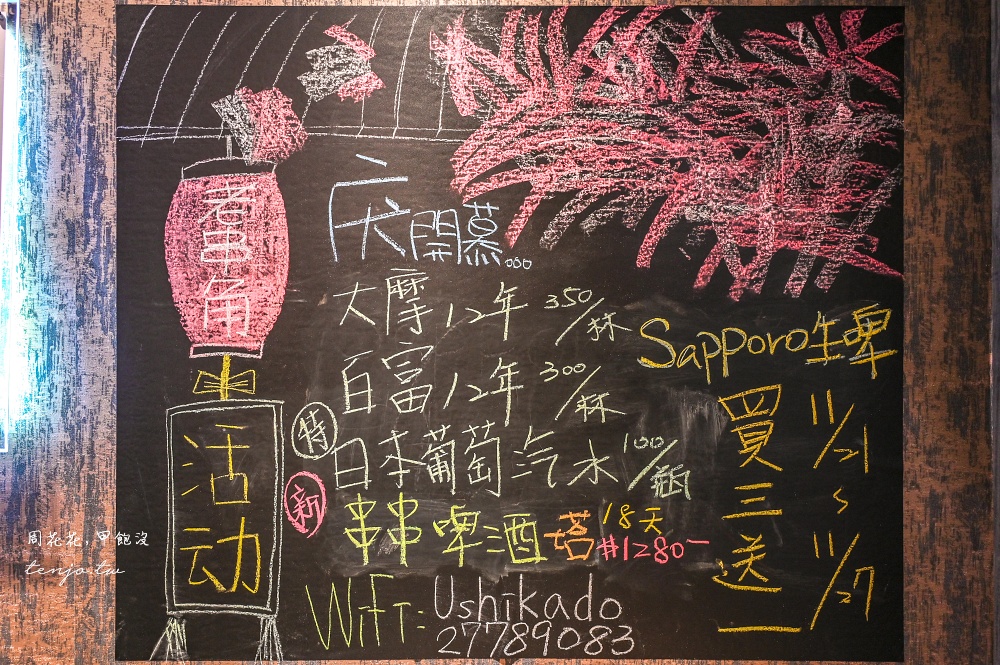 老串角
活动
庆開慕...
大摩12年 350/杯
百富12年 300/杯
特 日本葡萄汽水 100/瓶
新 串串啤酒塔 18天 #1280-
WiFi: Ushikado
27789083
Sapporo生啤
買三送一
11/21
~
11/27
周花花,甲飽沒
tenjo.tw